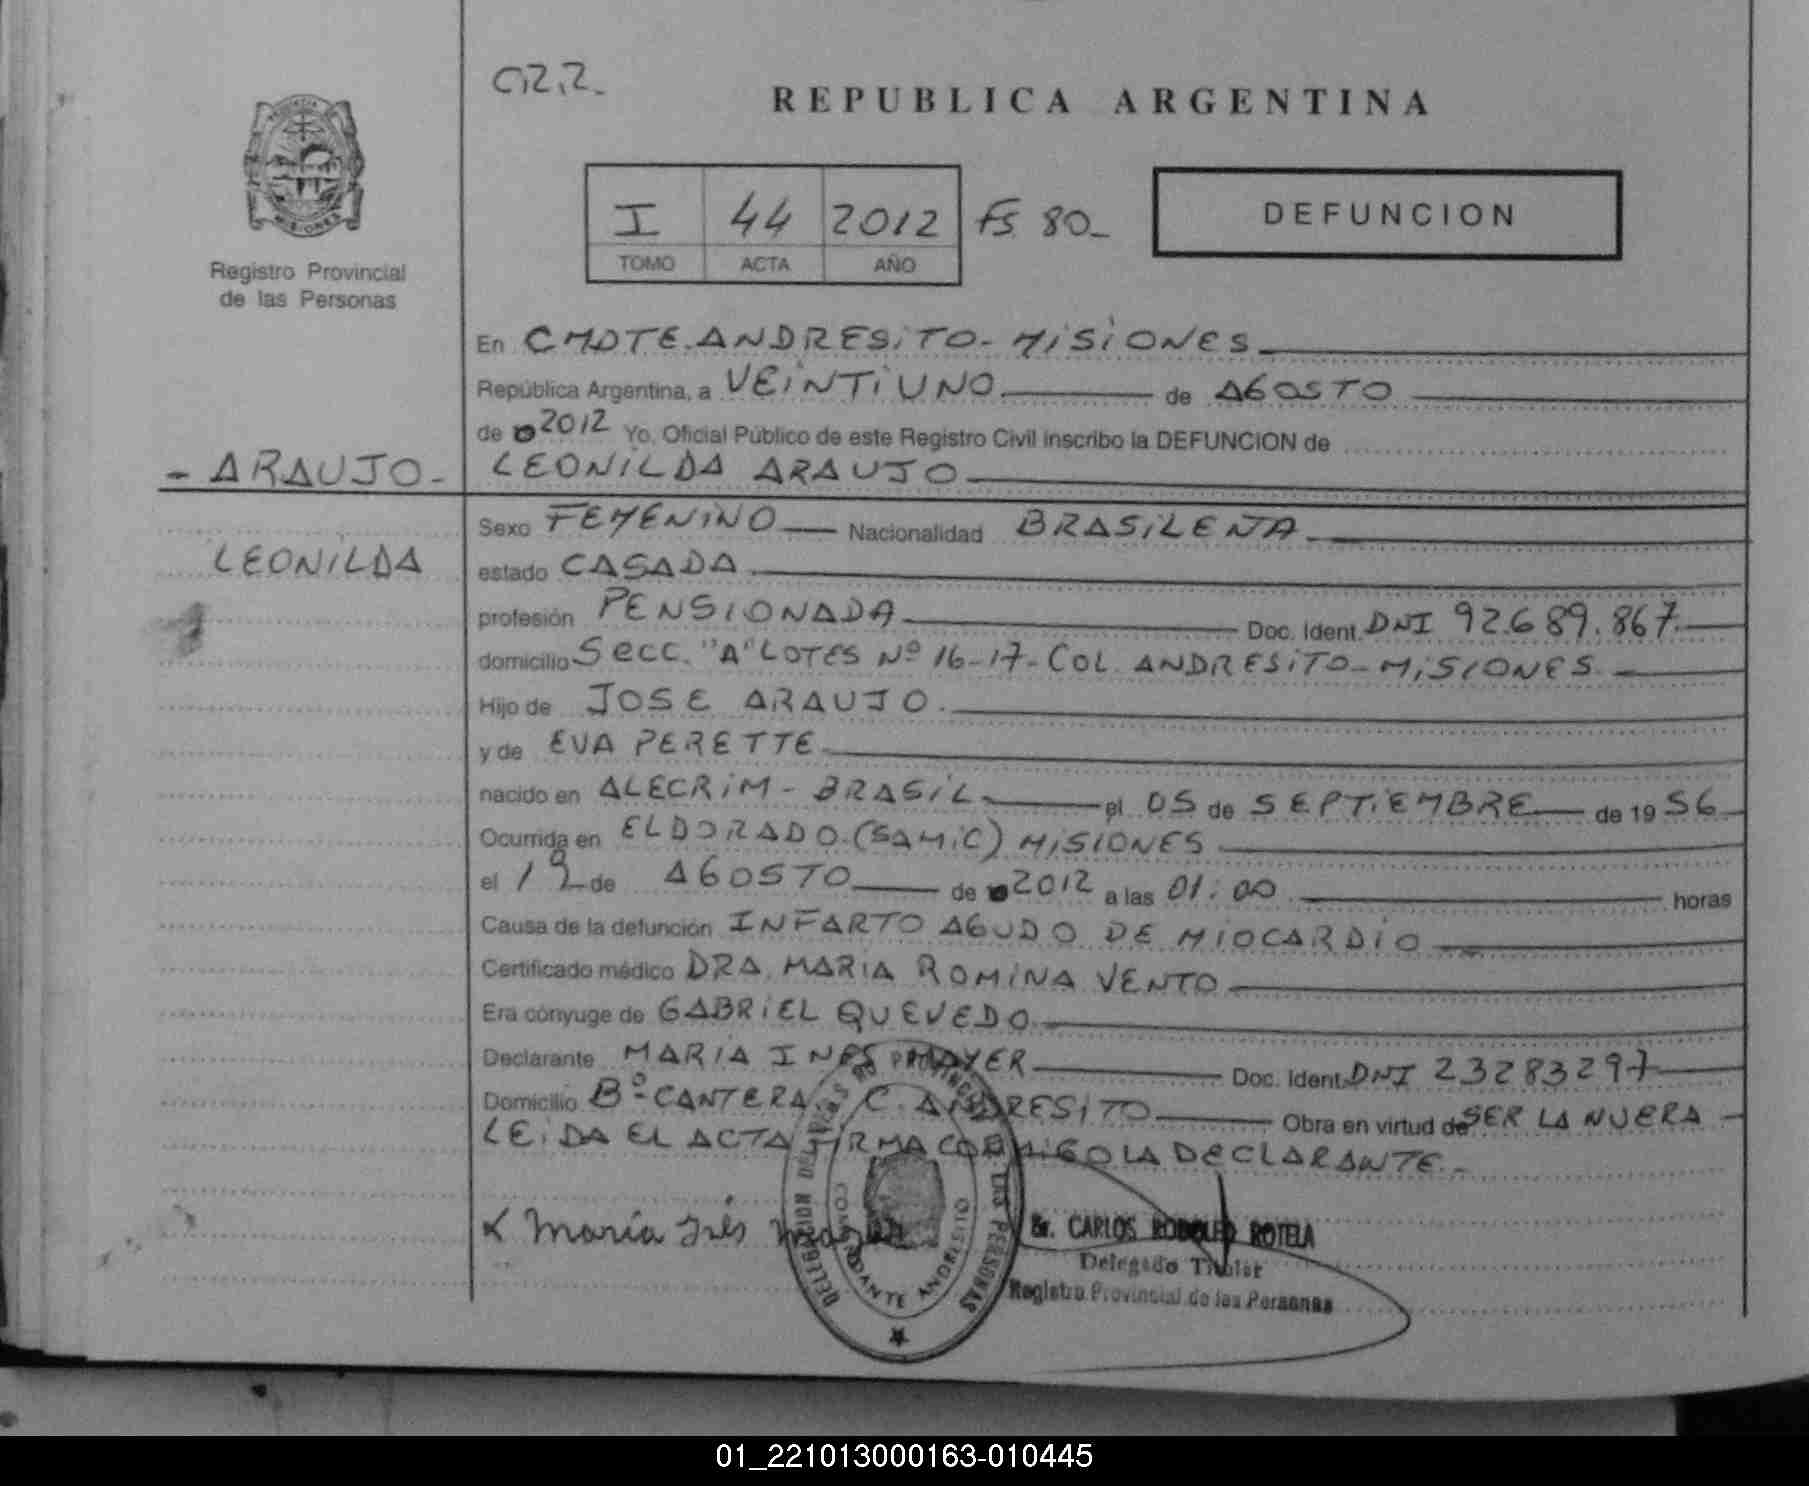 REPUBLICA ARGENTINA
MISIONES
Registro Provincial
de las Personas
I 44 2012 Fs 80_
TOMO ACTA AÑO
DEFUNCION
En CMDTE. ANDRESITO - MISIONES
República Argentina, a VEINTIUNO de AGOSTO
de 2012 Yo, Oficial Público de este Registro Civil inscribo la DEFUNCION de
- ARAUJO -
LEONILDA ARAUJO
Sexo FEMENINO Nacionalidad BRASILEÑA
LEONILDA
estado CASADA
profesión PENSIONADA Doc. Ident. DNI 92.689.867
domicilio SECC. "A" LOTES Nº 16-17- COL. ANDRESITO - MISIONES
Hijo de JOSE ARAUJO
y de EVA PERETTE
nacido en ALECRIM - BRASIL el 05 de SEPTIEMBRE de 19 56
Ocurrida en ELDORADO (SAMIC) MISIONES
el 19 de AGOSTO de 2012 a las 01:00 horas
Causa de la defunción INFARTO AGUDO DE MIOCARDIO
Certificado médico DRA. MARIA ROMINA VENTO
Era cónyuge de GABRIEL QUEVEDO
Declarante MARIA INES Doc. Ident. DNI 23283297
Domicilio Bº CANTERA C. ANDRESITO Obra en virtud de SER LA NUERA -
LEIDA EL ACTA FIRMA CONMIGO LA DECLARANTE -
María Inés
DELEGACION LAS PERSONAS
COMANDANTE ANDRESITO
Sr. CARLOS RODOLFO ROTELA
Delegado Titular
Registro Provincial de las Personas
01_221013000163-010445